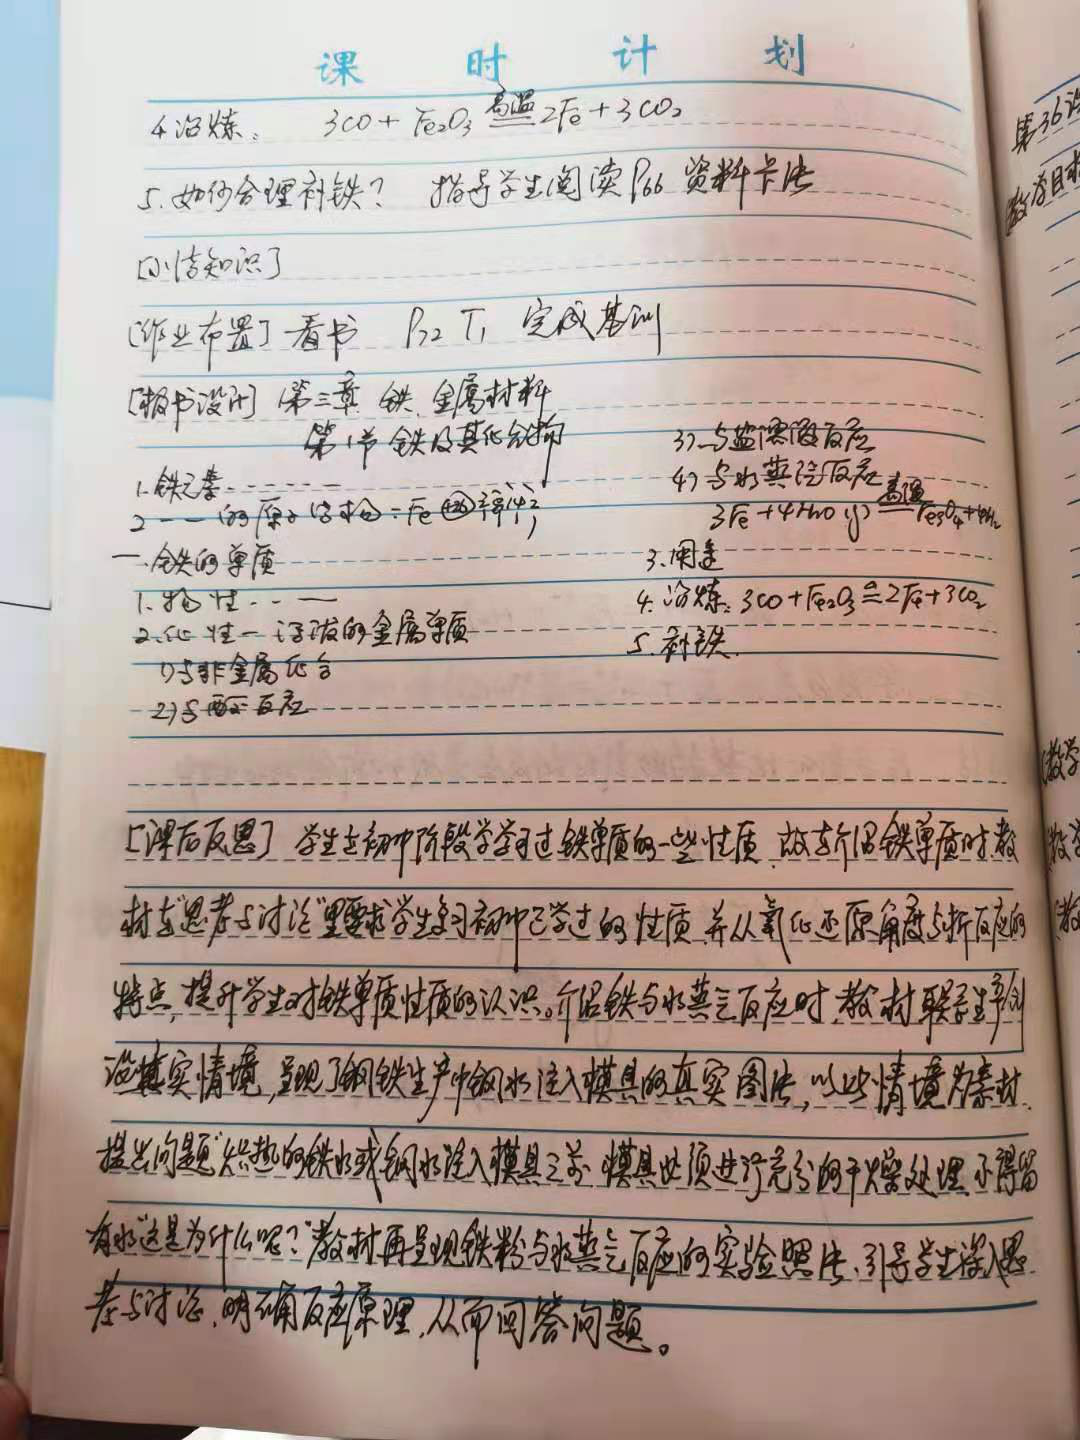 课 时 计 划
4.冶炼: 3CO + Fe₂O₃ 高温 2Fe + 3CO₂
5.如何合理补铁? 指导学生阅读P66 资料卡片
[小结知识]
[作业布置] 看书 P72 T1 完成基训
[板书设计] 第三章 铁 金属材料
第1节 铁及其化合物
1.铁元素------
2 --- 的原子结构: Fe
一.铁的单质
1.物性..—
2.化性—活泼的金属单质
1)与非金属化合
2)与酸反应
3)与盐溶液反应
4)与水蒸汽反应
3Fe+4H₂O(g) 高温 Fe₃O₄+4H₂
3.用途
4.冶炼: 3CO+Fe₂O₃=2Fe+3CO₂
5.补铁.
[课后反思] 学生在初中阶段学学习过铁单质的一些性质,故在介绍铁单质时,教
材在"思考与讨论"里要求学生复习初中已学过的性质,并从氧化还原角度分析反应的
特点,提升学生对铁单质性质的认识。介绍铁与水蒸气反应时,教材联系生产创
设真实情境,呈现了钢铁生产中钢水注入模具的真实图片,以此情境为素材,
提出问题"炽热的铁水或钢水注入模具之前,模具必须进行充分的干燥处理,不得留
有水"这是为什么呢?"教材再呈现铁粉与水蒸气反应的实验照片,引导学生深入思
考与讨论,明确反应原理,从而回答问题。
第36课
教学目标
[教学
[教学
[教